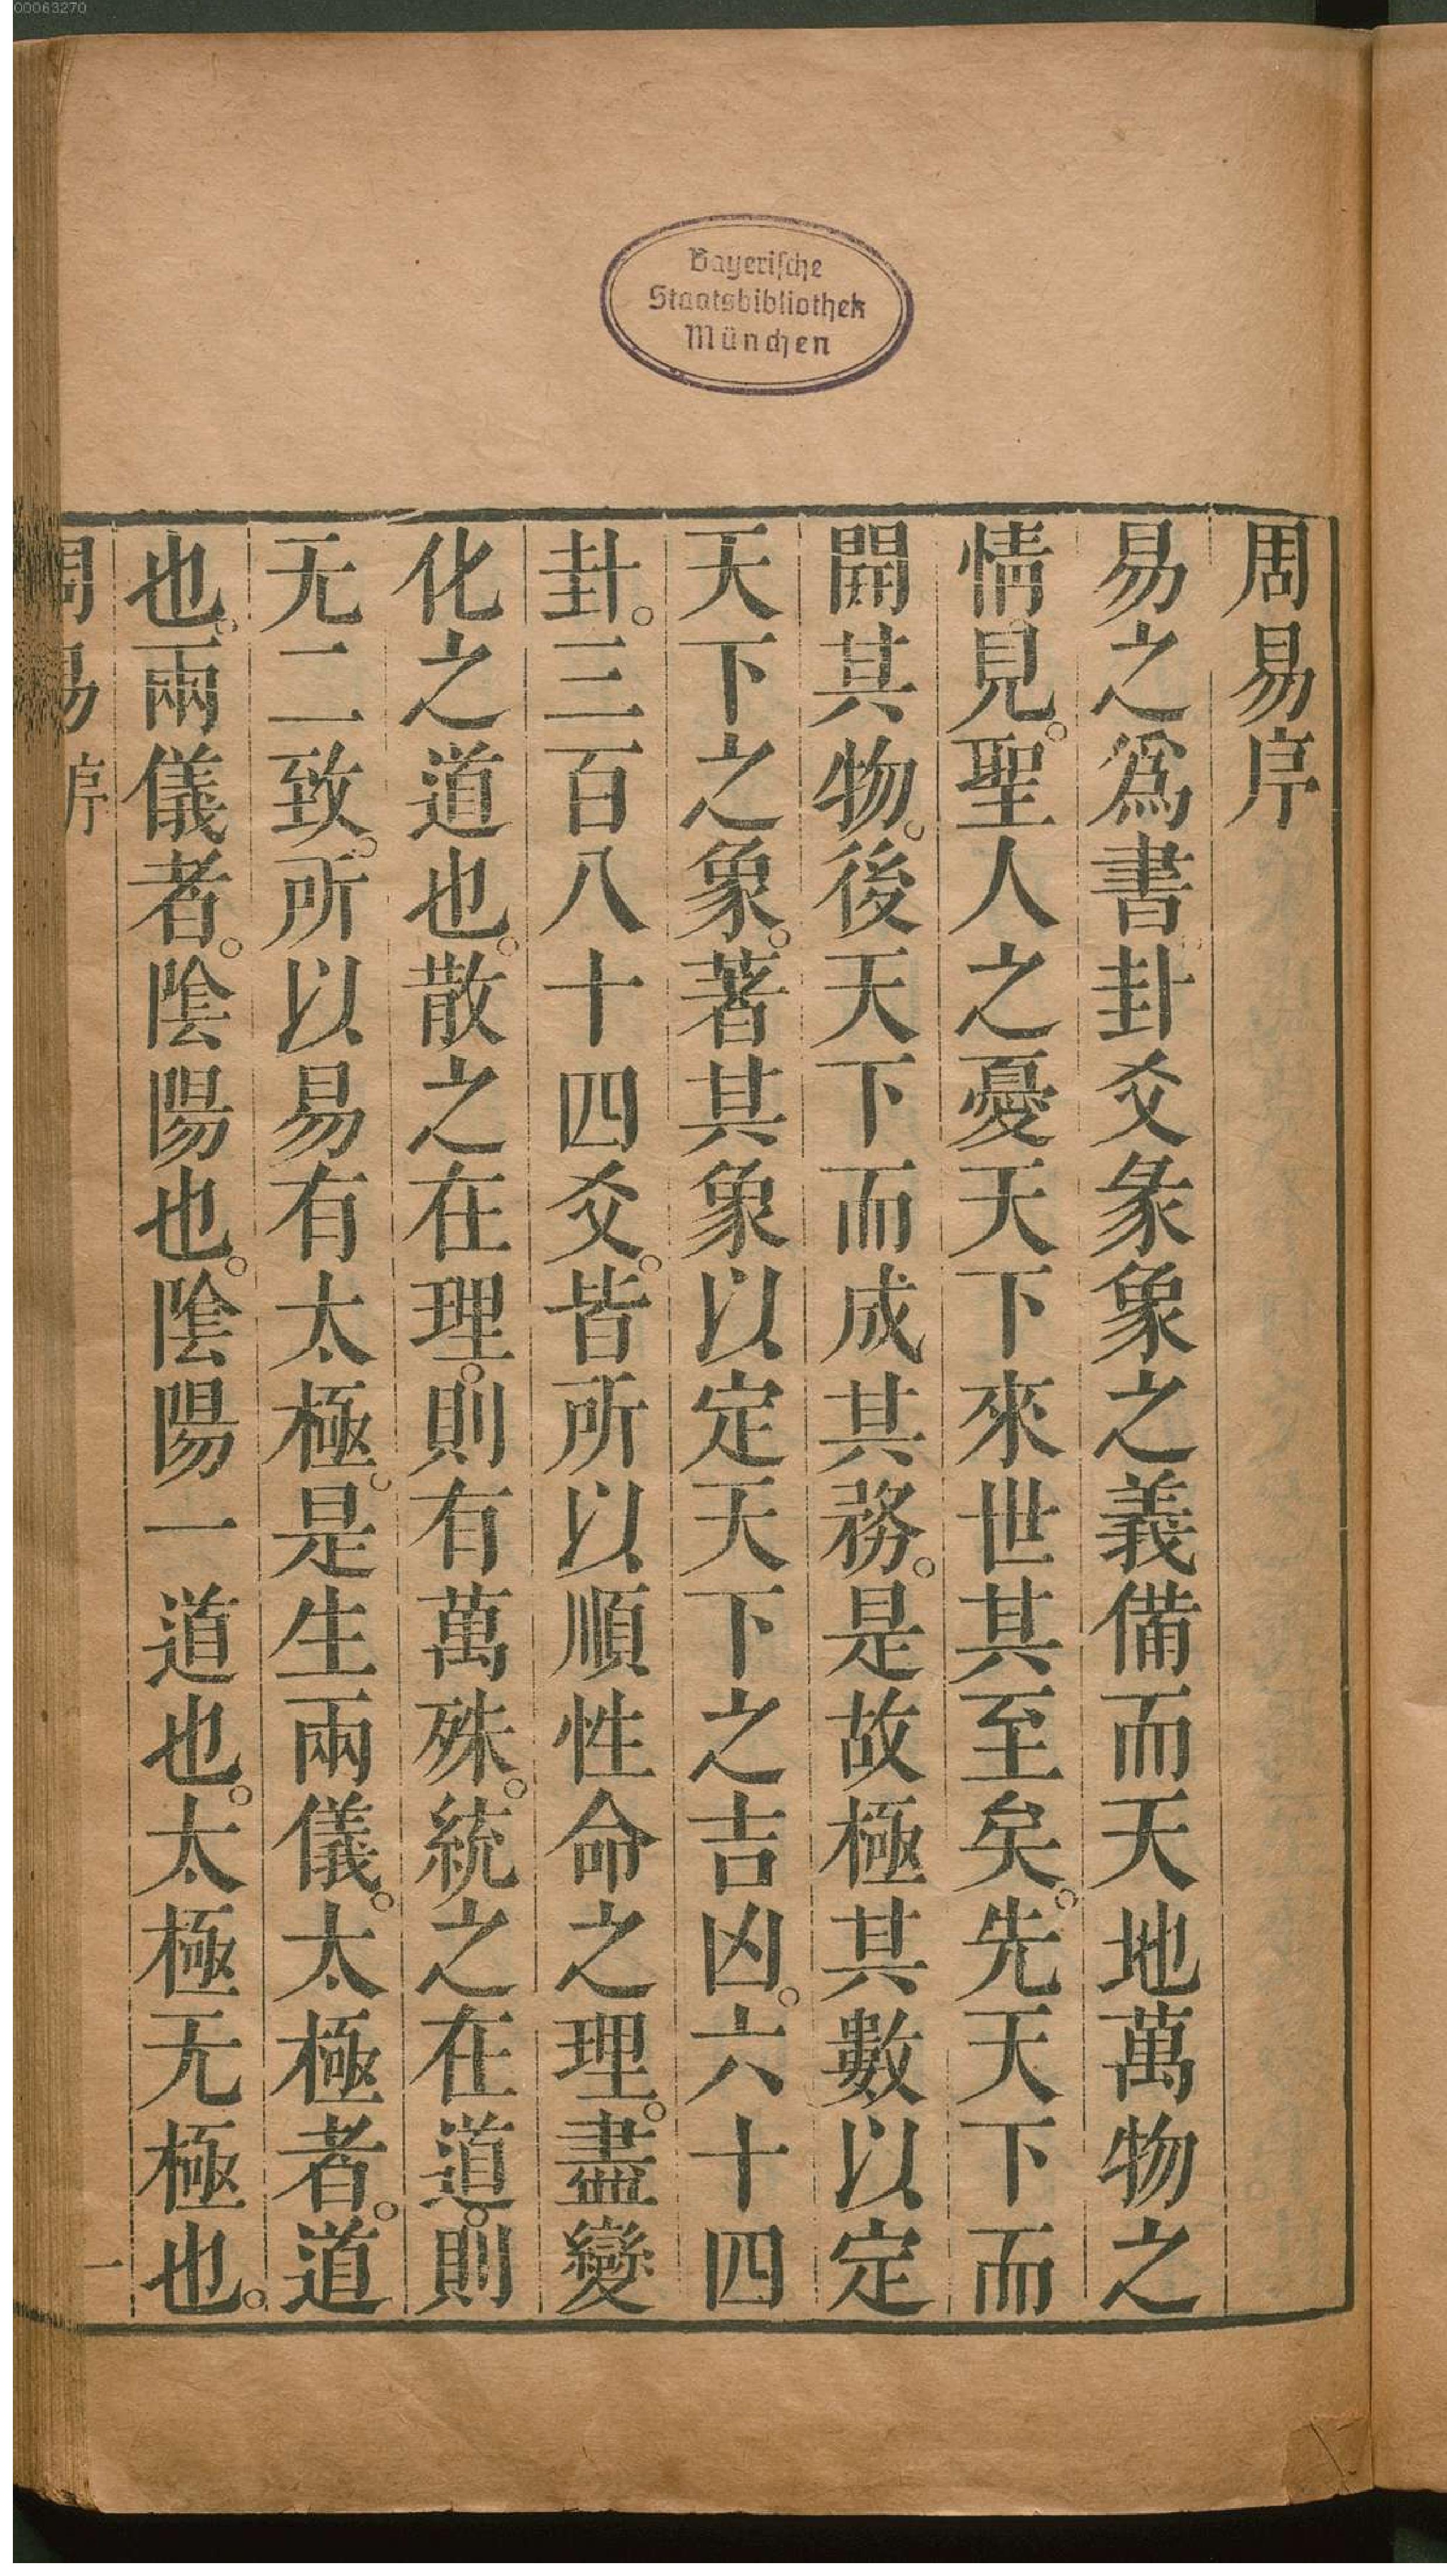 00063270
Bayerische
Staatsbibliothek
München
周易序
易之爲書卦爻彖象之義備而天地萬物之
情見。聖人之憂天下來世其至矣。先天下而
開其物。後天下而成其務。是故極其數以定
天下之象。著其象以定天下之吉凶。六十四
卦。三百八十四爻。皆所以順性命之理。盡變
化之道也。散之在理。則有萬殊。統之在道。則
无二致。所以易有太極。是生兩儀。太極者。道
也。兩儀者。陰陽也。陰陽一道也。太極无極也。
周易序
一